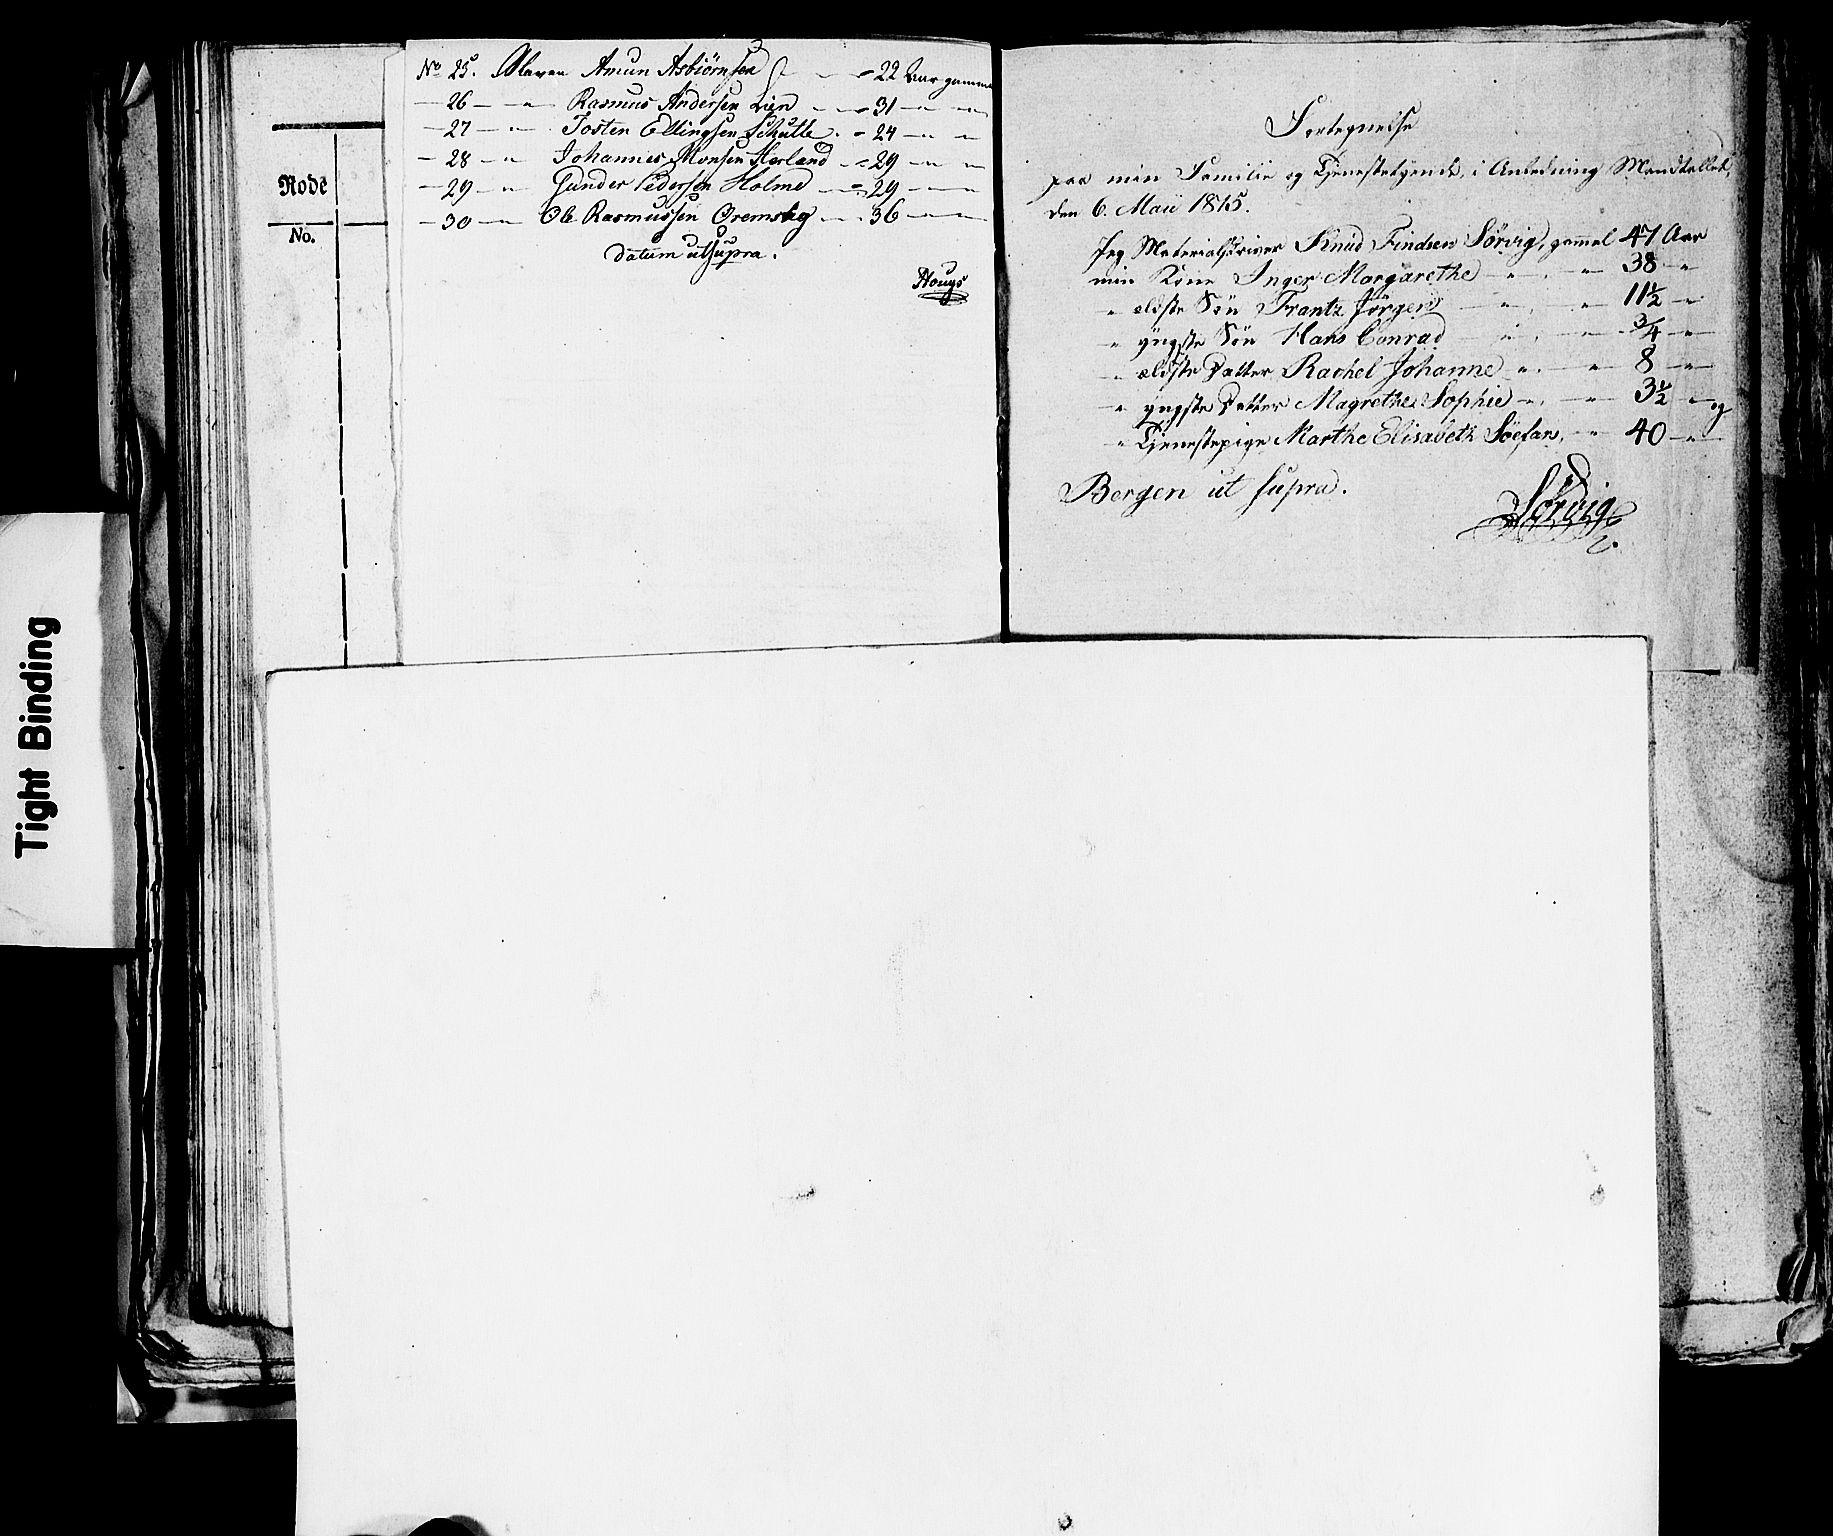 Tight Binding
Rode
No.
No 25. Slaven Amun Asbiörnsen - - 22 Aar gamme
- 26 - " - Rasmus Andersen Lien - - 31 - " -
- 27 - " - Josten Ellingsen Schulle - 24 - " -
- 28 - " - Johannes Monsen Horland - 29 - " -
- 29 - " - Gunder Pedersen Holme - 29 - " -
- 30 - " - Ole Rasmussen - 36 - " -
Datum ut supra.
Hougs
Fortegnelse
paa min Familie og Tjenestetyende, i Anledning Mandtallet,
den 6. Maii 1815.
Jeg Materialskriver Knud Findsen Sørvig, gamel 47 Aar
min Kone Inger Margarethe - " - 38 - "
" ældste Søn Frantz Jørgen - " - 11½ - "
" yngste Søn Hans Conrad - " - ¾ - "
" ældste Datter Rachel Johanne " - " 8 - "
" yngste Datter Magrethe Sophie - " - 3½ - " og
" Tjenestepige Marthe Elisabeth - " 40 - "
Bergen ut supra.
Sörvig